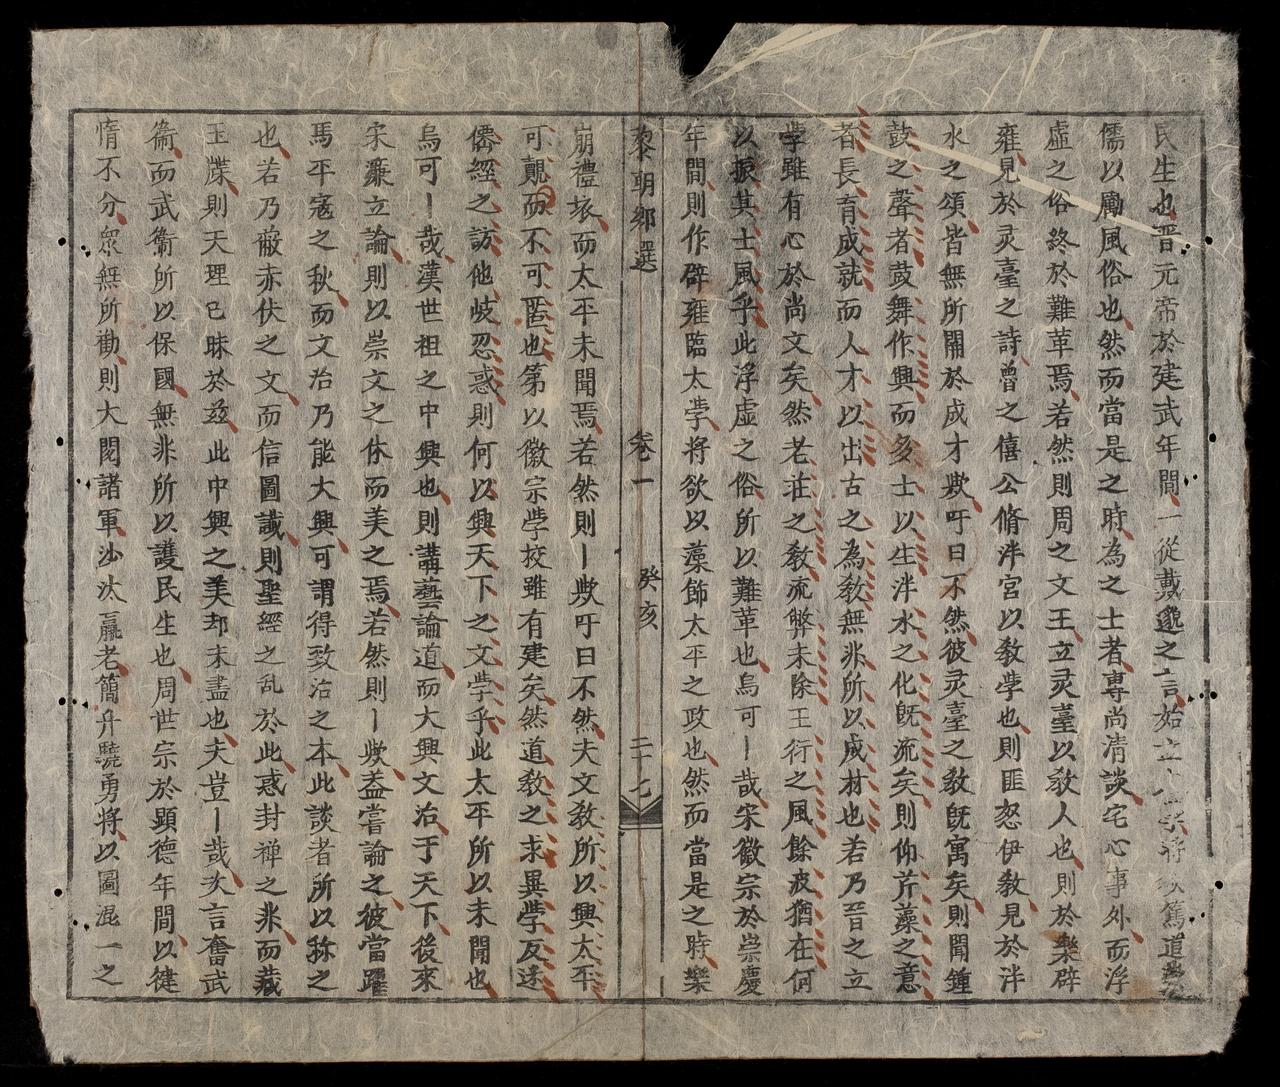 民生也晋元帝於建武年間一從戴邈之言始立太學將以篤道
儒以勵風俗也然而當是之時為之士者專尚清談宅心事外而浮
虛之俗終於難革焉若然則周之文王立灵臺以教人也則於樂辟
雍見於灵臺之詩魯之僖公脩泮宮以教學也則匪怒伊教見於泮
水之頌皆無所關於成才欤吁曰不然彼灵臺之教既寓矣則聞鍾
鼓之聲者鼓舞作興而多士以生泮水之化既流矣則仰芹藻之意
者長育成就而人才以出古之為教無非所以成材也若乃晉之立
學雖有心於尚文矣然老莊之教流弊未除王衍之風餘波猶在何
以振其士風乎此浮虛之俗所以難革也烏可丨哉宋徽宗於崇慶
年間則作辟雍臨太學將欲以藻飾太平之政也然而當是之時樂
黎朝鄉選 卷一 癸亥 二十七
崩禮垓而太平未聞焉若然則丨欤吁曰不然夫文教所以興太平
可覿而不可匿也第以徽宗學校雖有建矣然道教之求異學反迷
儒經之訪他岐忍惑則何以興天下之文學乎此太平所以未聞也
烏可丨哉漢世祖之中興也則講藝論道而大興文治于天下後來
宋濂立論則以崇文之休而美之焉若然則丨欤盖嘗論之彼當躍
馬平寇之秋而文治乃能大興可謂得致治之本此談者所以称之
也若乃蔽赤伏之文而信圖讖則聖經之乱於此惑封禪之非而藏
玉牒則天理已昧於茲此中興之美却未盡也夫豈丨哉次言奮武
衞而武衞所以保國無非所以護民生也周世宗於顯德年間以徤
惰不分衆無所勸則大閱諸軍沙汰羸老簡升驍勇將以圖混一之